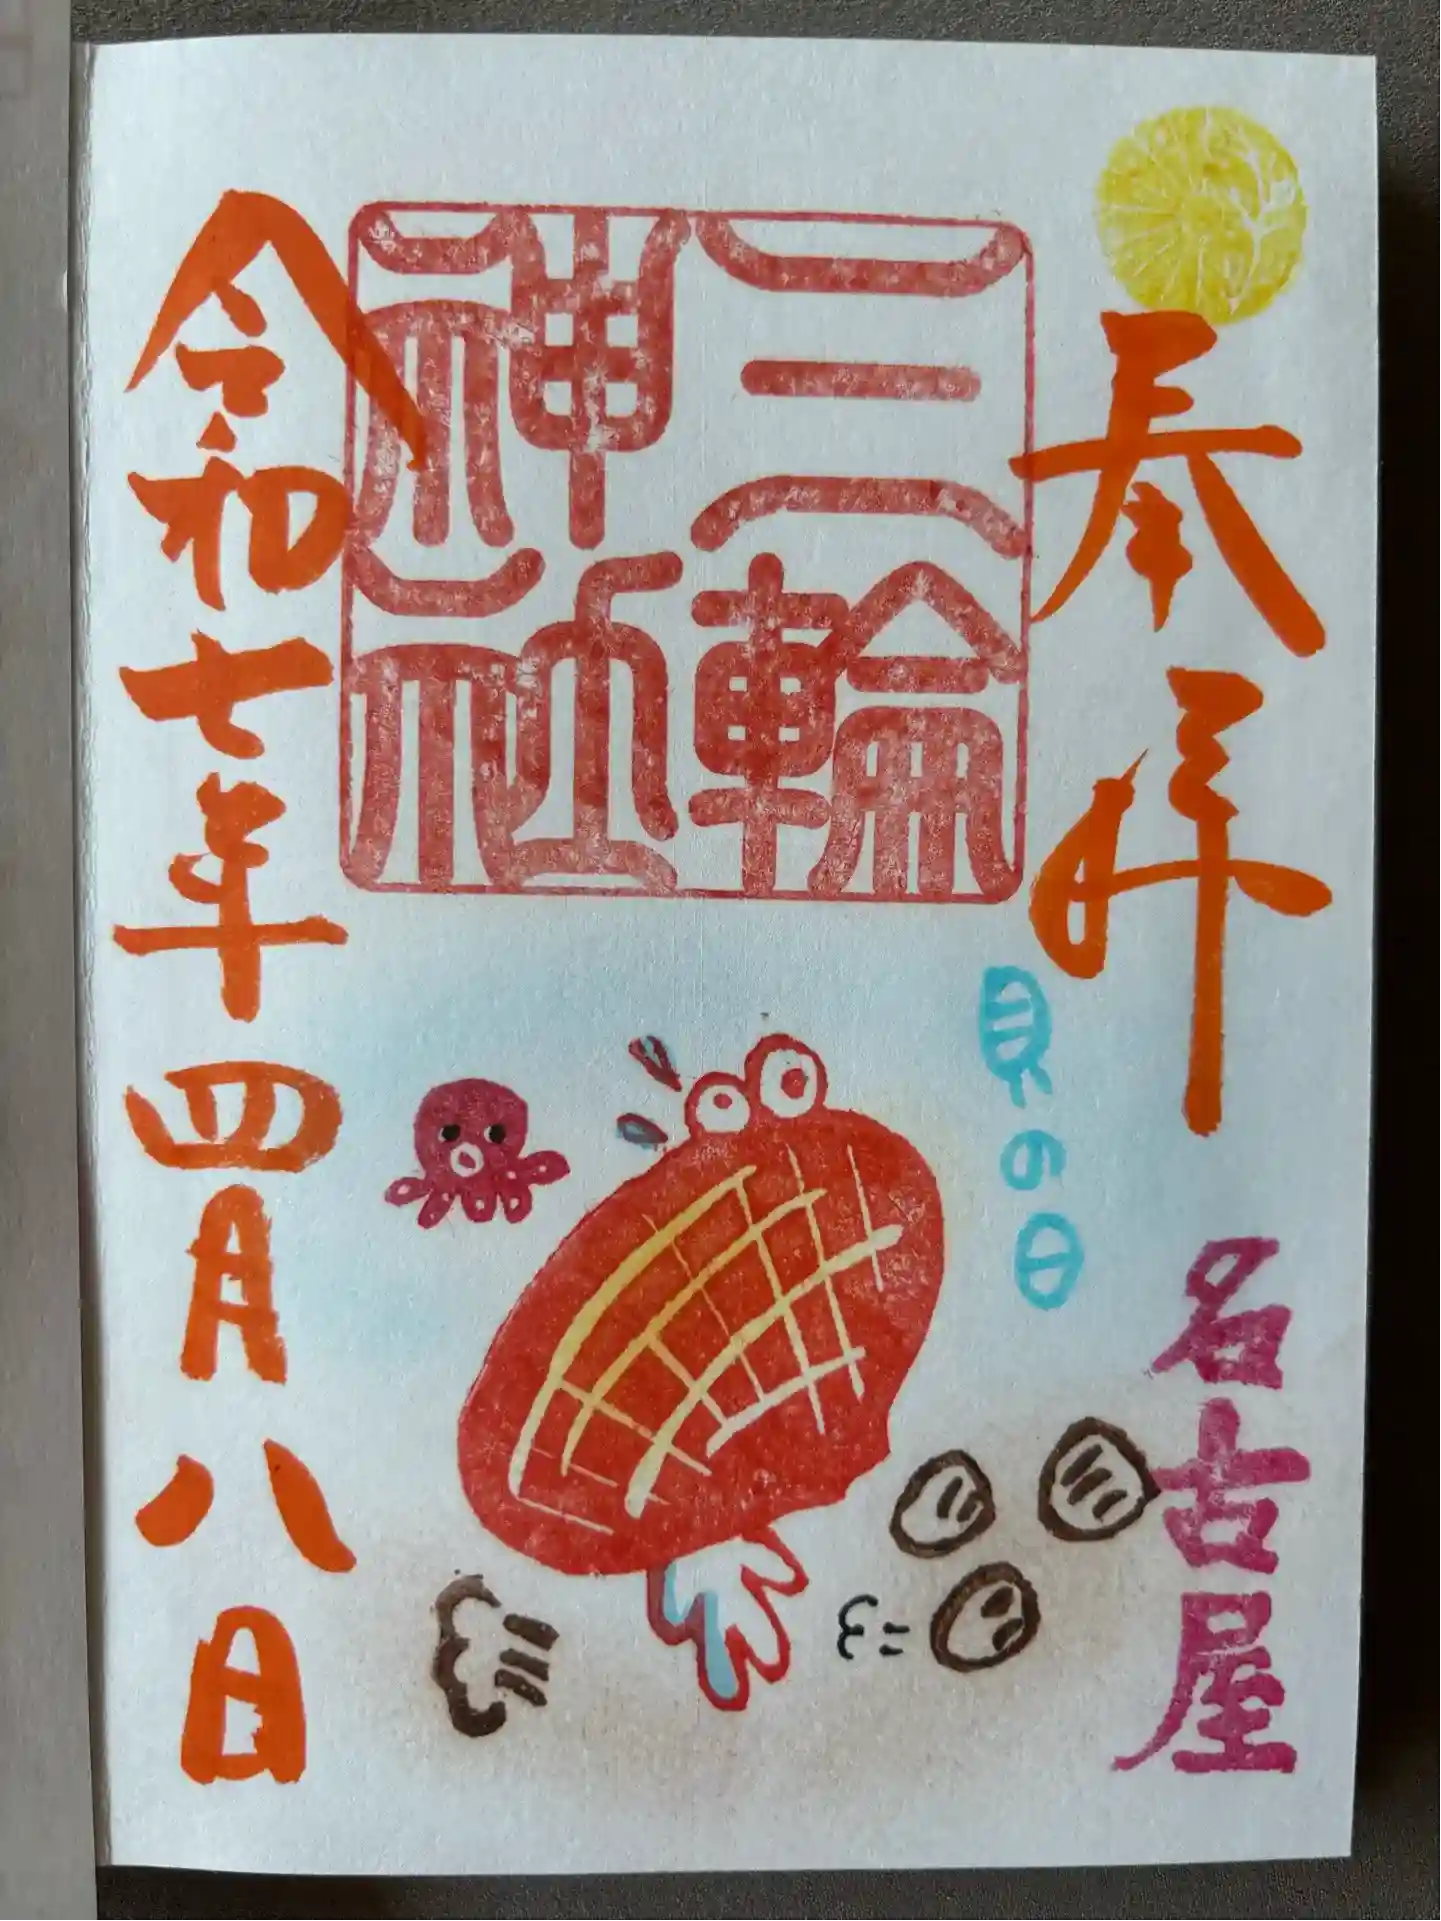 奉拝
貝の日
名古屋
三輪
神社
令和七年四月八日